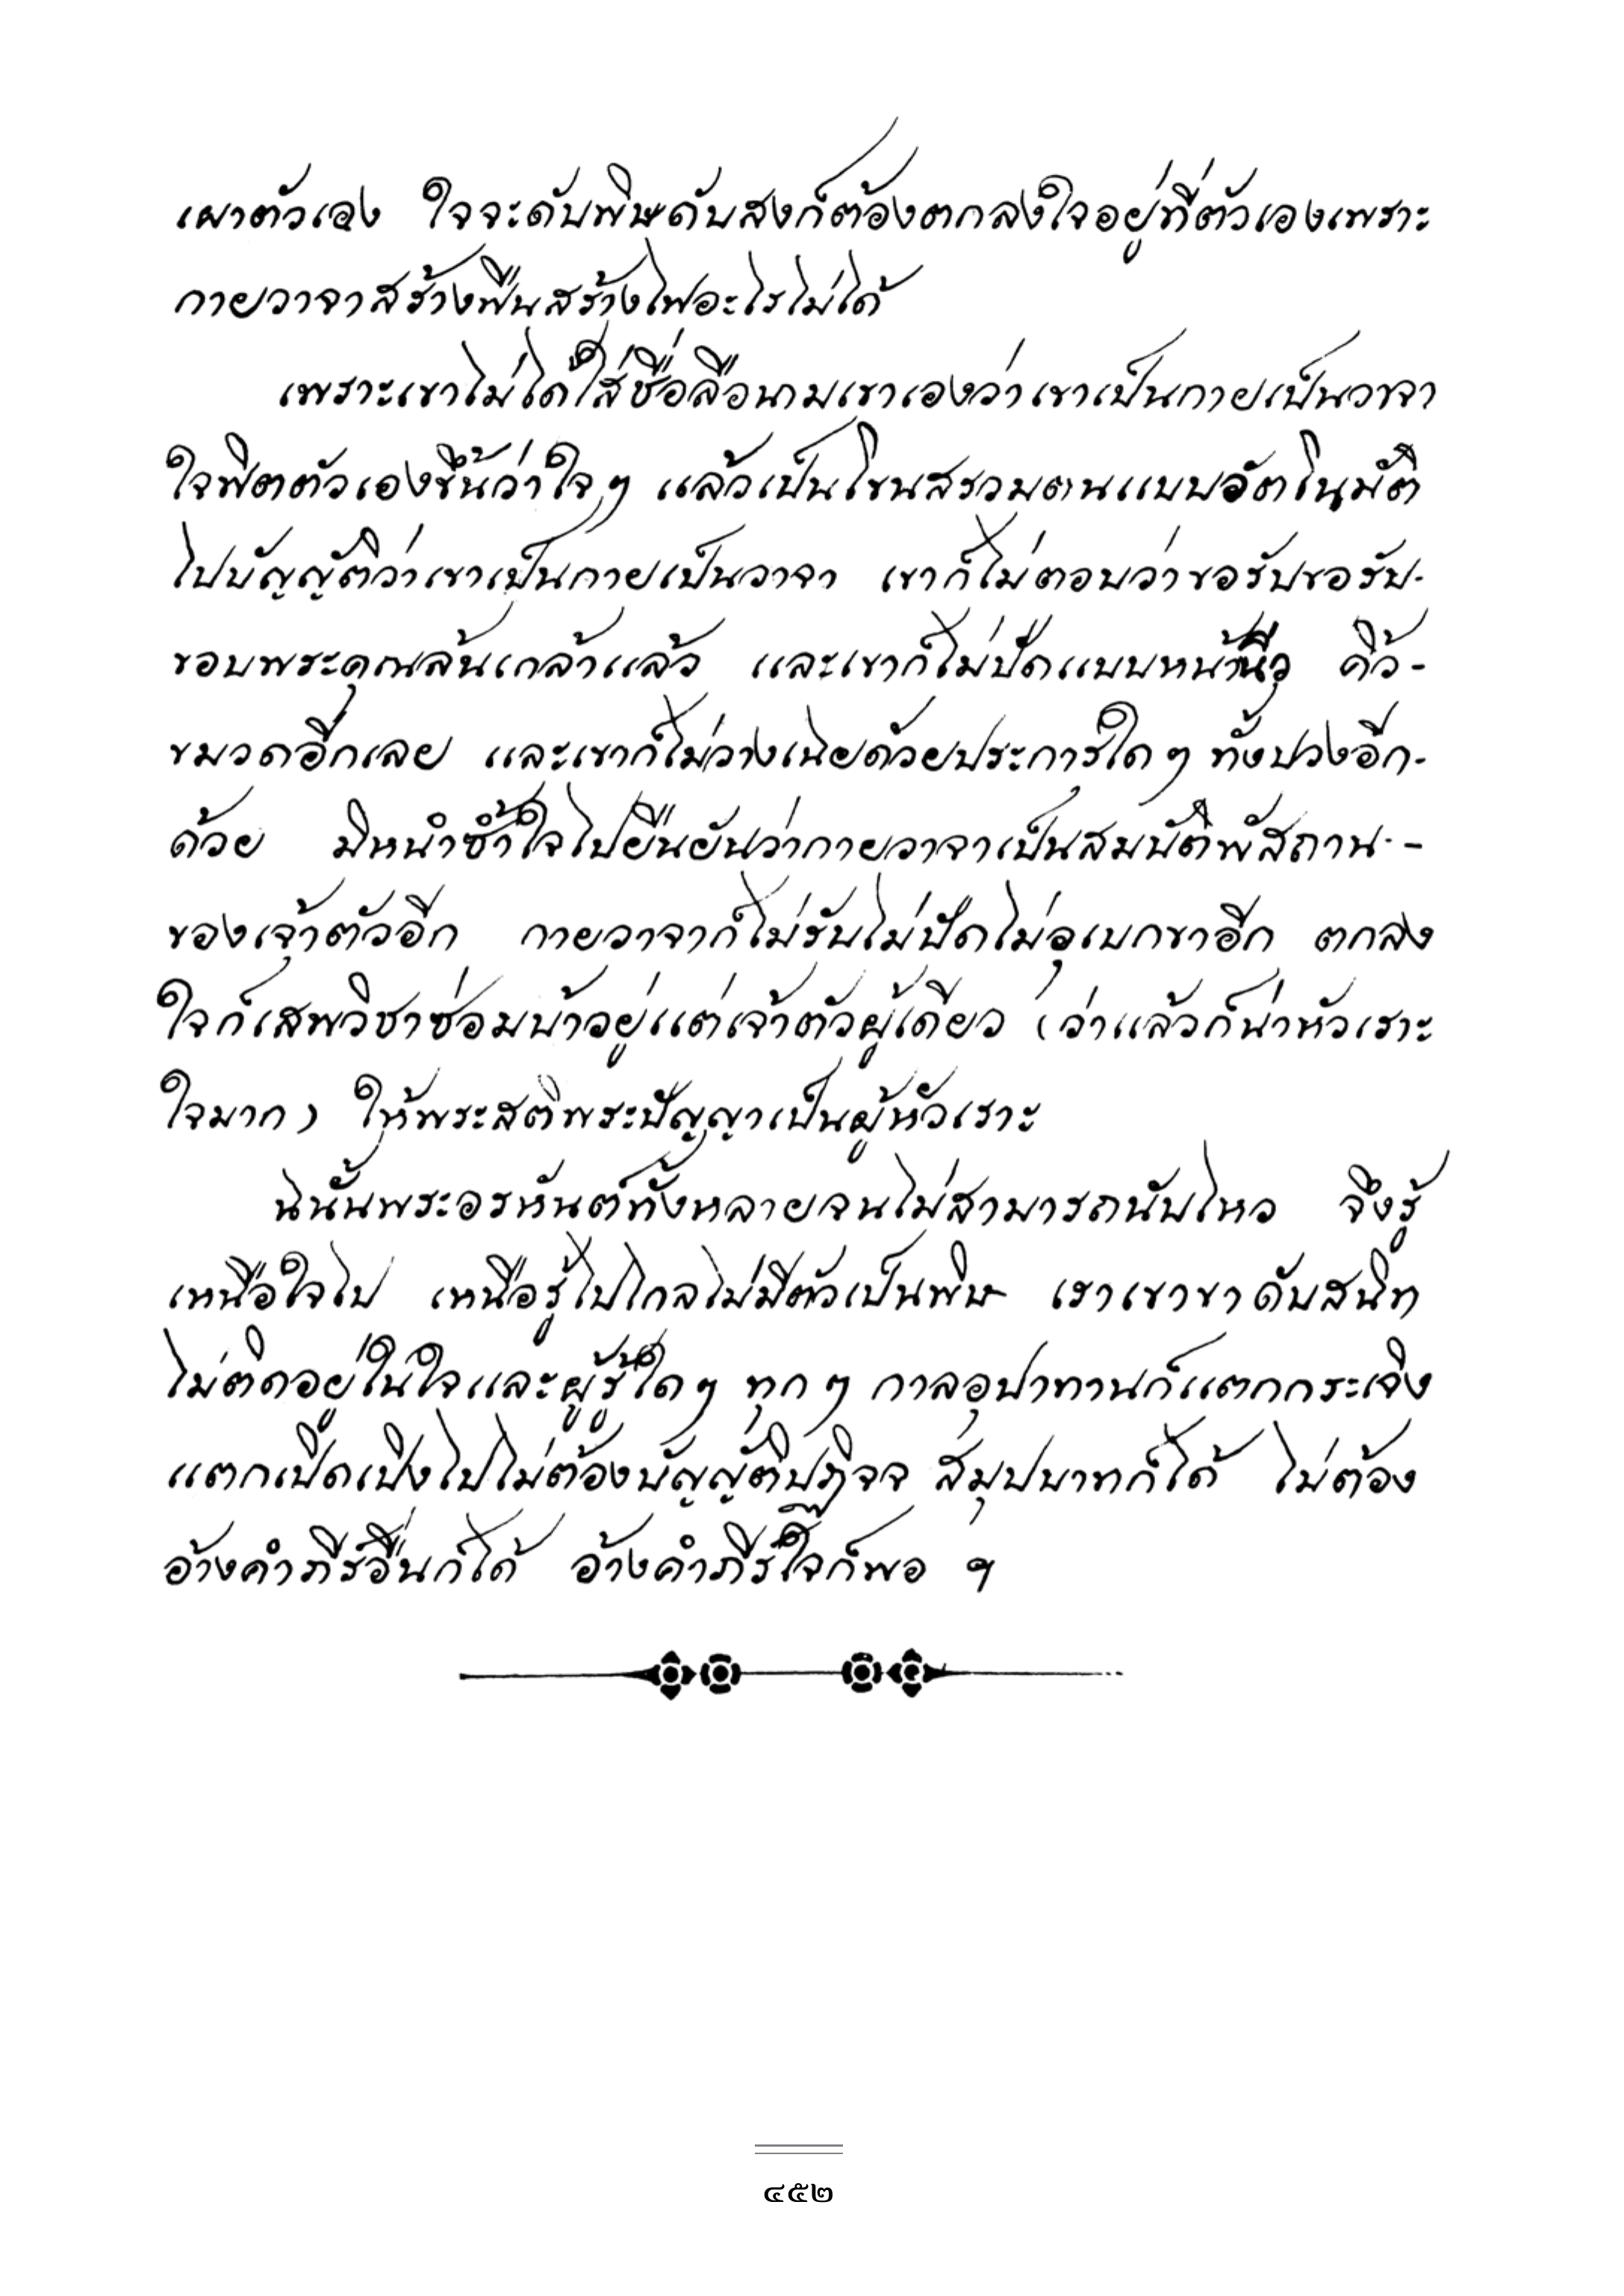 เผาตัวเอง ใจจะดับพิษดับสงก็ต้องตกลงใจอยู่ที่ตัวเองเพราะ
กายวาจาสร้างฟืนสร้างไฟอะไรไม่ได้
เพราะเขาไม่ได้ใส่ชื่อลือนามเขาเองว่าเขาเป็นกายเป็นวาจา
ใจฟิตตัวเองขึ้นว่าใจๆ แล้วเป็นโขนสรวมตนแบบอัตโนมัติ
ไปบัญญัติว่าเขาเป็นกายเป็นวาจา เขาก็ไม่ตอบว่าขอรับขอรับ.
ขอบพระคุณล้นเกล้าแล้ว และเขาก็ไม่ปัดแบบหน้านิ่ว คิ้ว-
ขมวดอีกเลย และเขาก็ไม่วางเฉยด้วยประการใดๆ ทั้งปวงอีก.
ด้วย มิหนำซ้ำใจไปยืนยันว่ากายวาจาเป็นสมบัติพัสถาน.-
ของเจ้าตัวอีก กายวาจาก็ไม่รับไม่ปัดไม่อุเบกขาอีก ตกลง
ใจก็เสพวิชาซ่อมบ้าอยู่แต่เจ้าตัวผู้เดียว (ว่าแล้วก็น่าหัวเราะ
ใจมาก) ให้พระสติพระปัญญาเป็นผู้หัวเราะ
ฉนั้นพระอรหันต์ทั้งหลายจนไม่สามารถนับไหว จึงรู้
เหนือใจไป เหนือรู้ไปไกลไม่มีตัวเป็นพิษ เราเขาขาดับสนิท
ไม่ติดอยู่ในใจและผู้รู้ใดๆ ทุกๆ กาลอุปาทานก็แตกกระเจิง
แตกเปิดเปิงไปไม่ต้องบัญญัติปฏิจจ สมุปบาทก็ได้ ไม่ต้อง
อ้างคำภีร์อื่นก็ได้ อ้างคำภีร์ใจก็พอ ฯ
๔๕๒